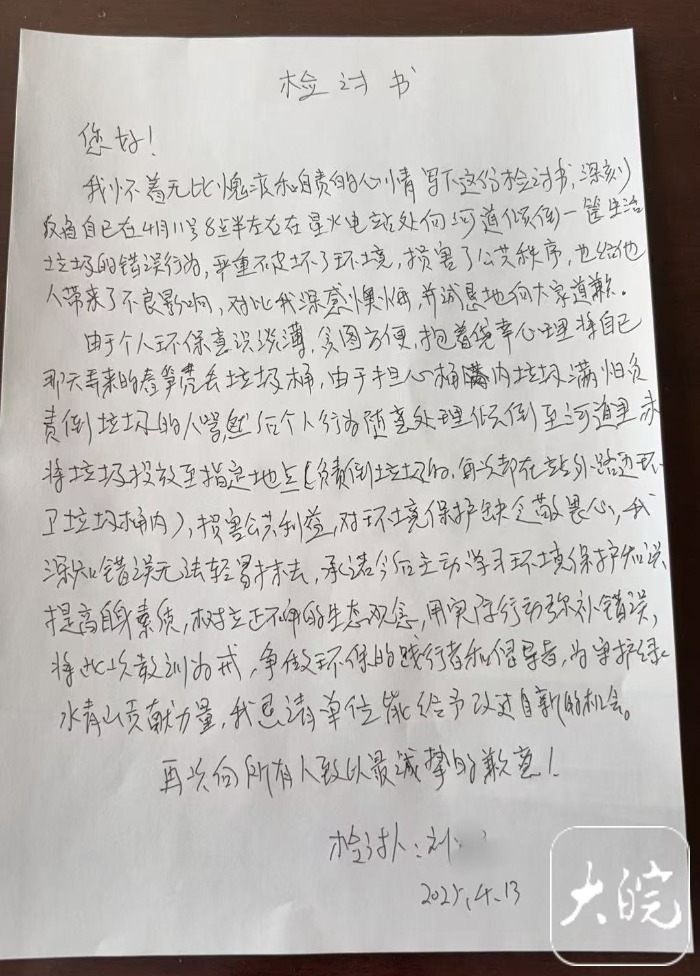 检讨书
您好！
我怀着无比愧疚和自责的心情写下这份检讨书，深刻
反省自己在4月11号8点半左右在星火电站处向河道倾倒一筐生活
垃圾的错误行为，严重破坏了环境，损害了公共秩序，也给他
人带来了不良影响，对此我深感懊悔，并诚恳地向大家道歉。
由于个人环保意识淡薄，贪图方便，抱着侥幸心理将自己
那天弄来的莴笋壳丢垃圾桶，由于担心桶内垃圾满怕负
责倒垃圾的人骂然后个人行为随意处理倾倒至河道里未
将垃圾投放至指定地点（负责倒垃圾的，每次都在站外路边环
卫垃圾桶内），损害公共利益，对环境保护缺乏敬畏心，我
深知错误无法轻易抹去，承诺今后主动学习环境保护知识
提高自身素质，树立正确的生态观念，用实际行动弥补错误，
将此次教训为戒，争做环保的践行者和倡导者，为守护绿
水青山贡献力量，我恳请单位能给予改过自新的机会。
再次向所有人致以最诚挚的歉意！
检讨人：刘
2025.4.13
大皖